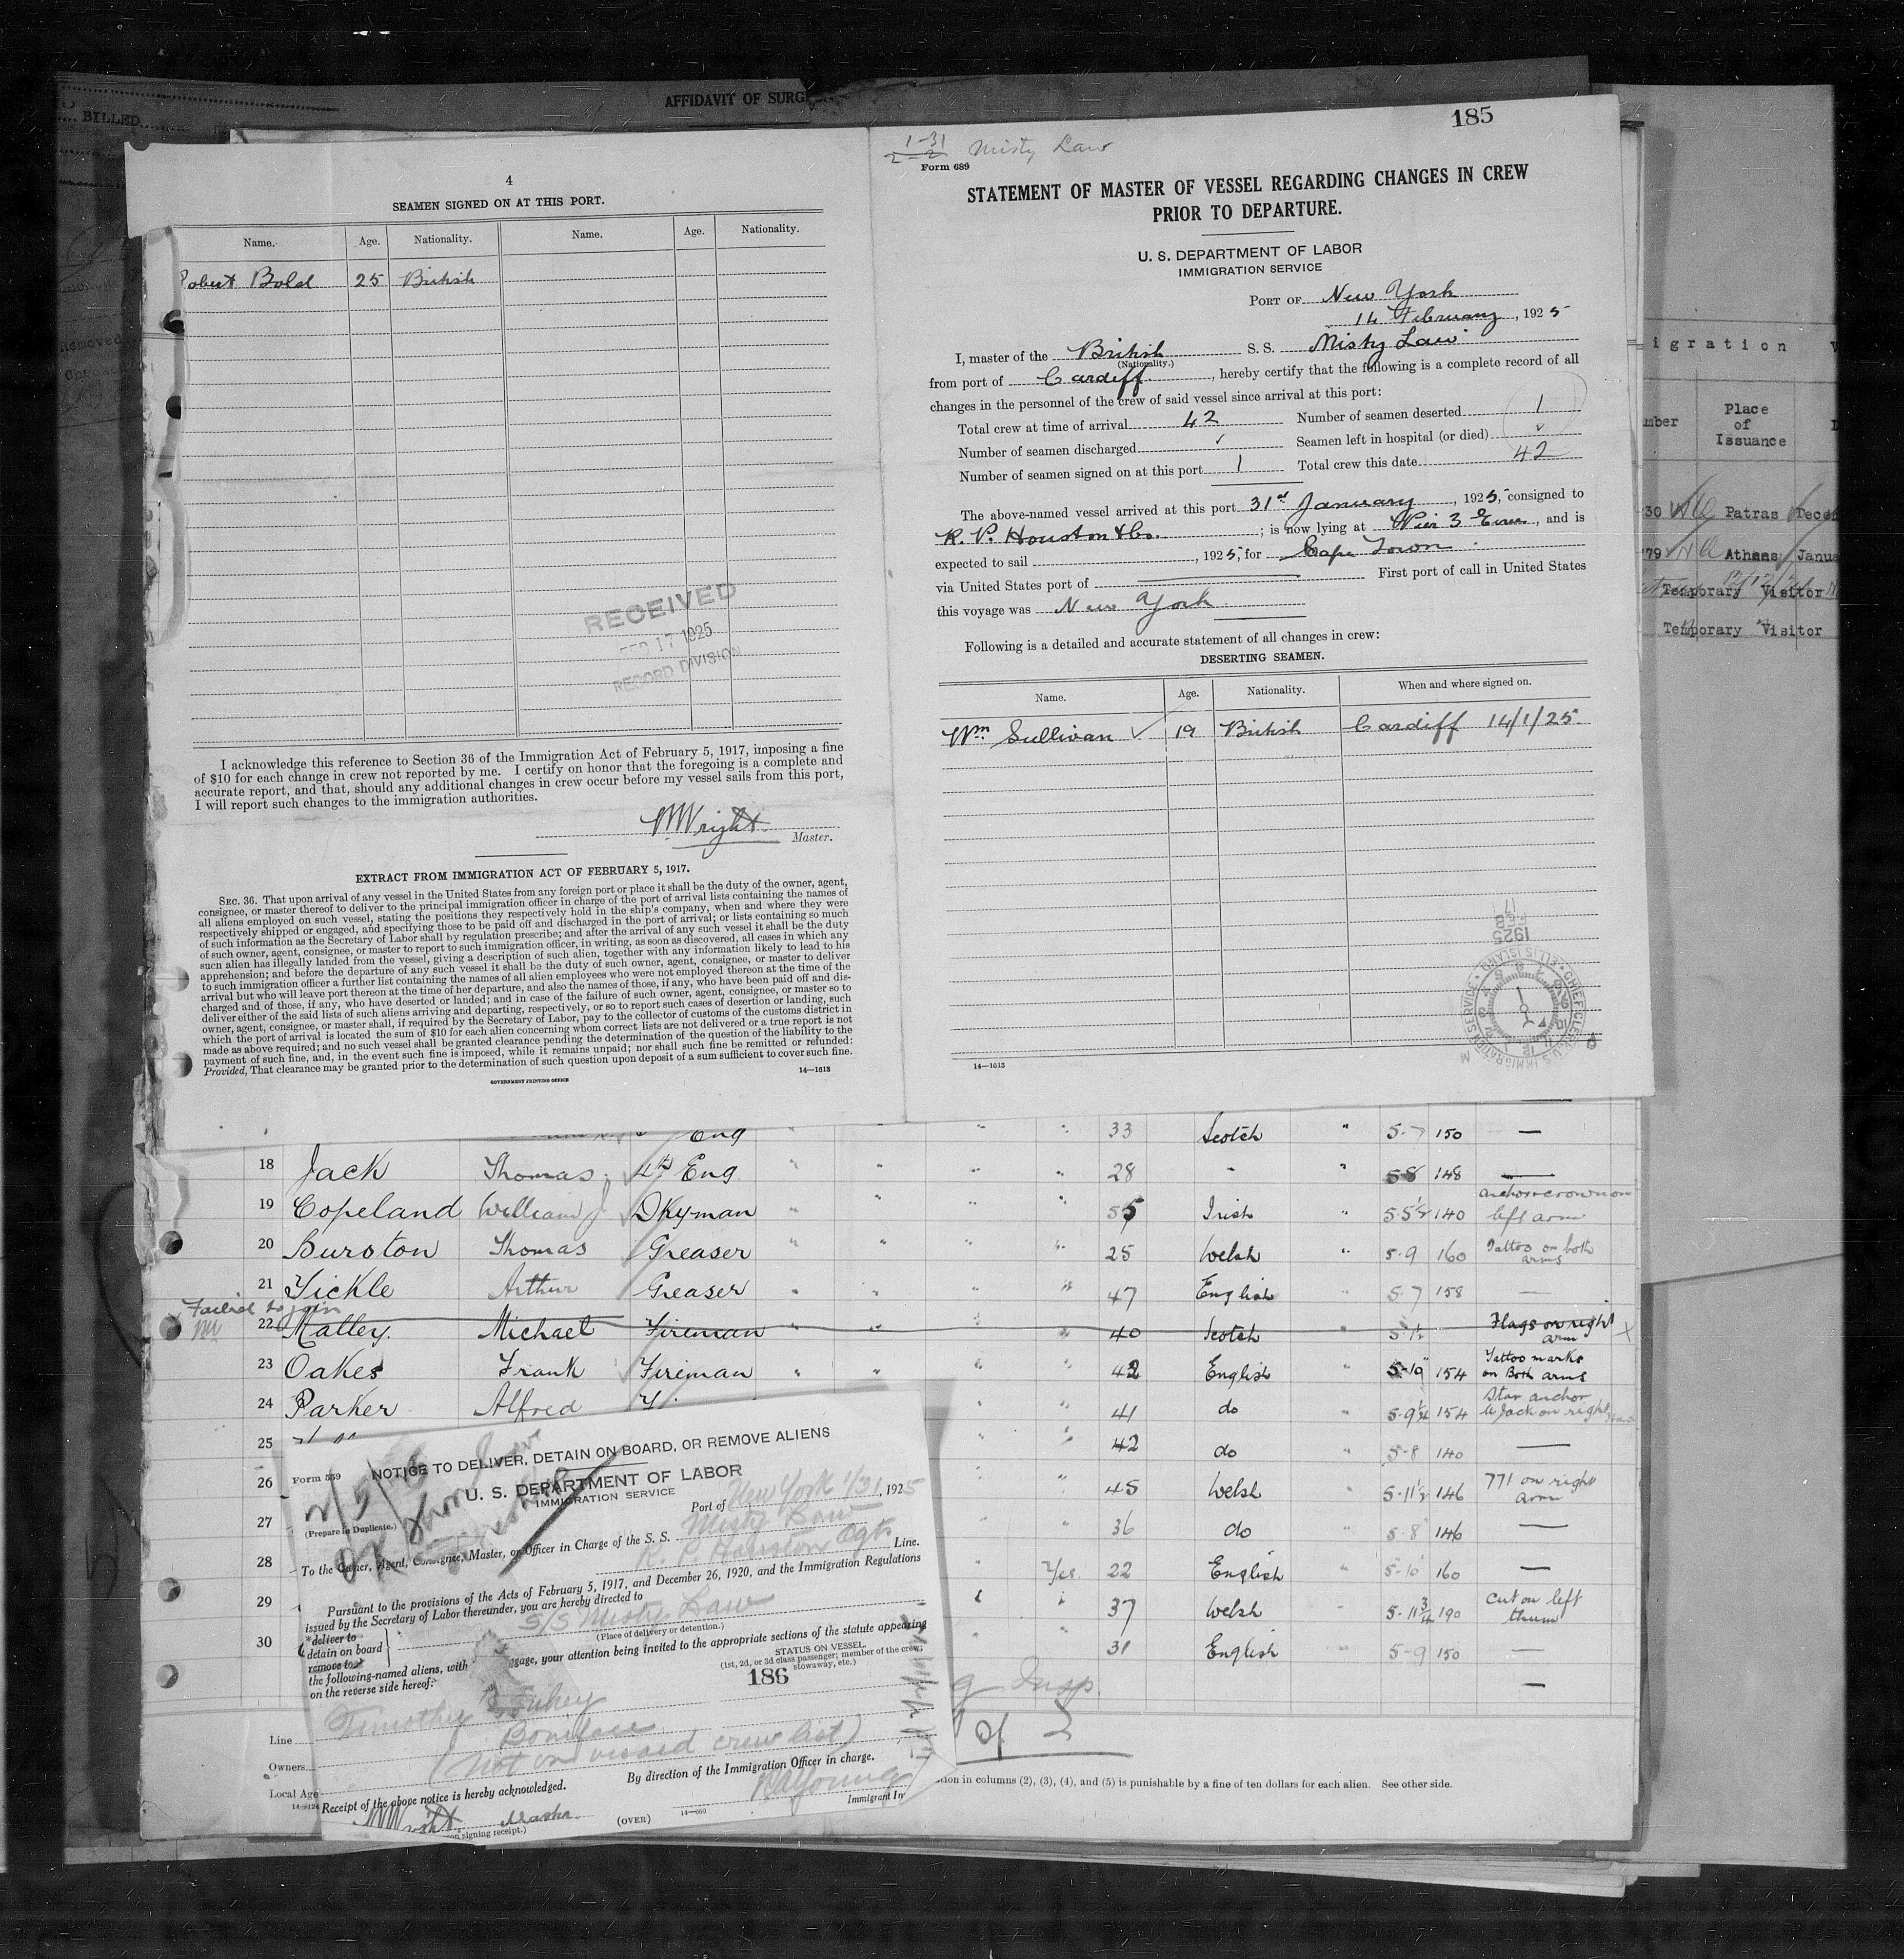 BILLED
AFFIDAVIT OF
4
SEAMEN SIGNED ON AT THIS PORT.
Name. Age. Nationality. Name. Age. Nationality.
Robert Bold 25 British
RECEIVED
FEB 17 1925
RECORD DIVISION
I acknowledge this reference to Section 36 of the Immigration Act of February 5, 1917, imposing a fine
of $10 for each change in crew not reported by me. I certify on honor that the foregoing is a complete and
accurate report, and that, should any additional changes in crew occur before my vessel sails from this port,
I will report such changes to the immigration authorities.
Wright
Master.
EXTRACT FROM IMMIGRATION ACT OF FEBRUARY 5, 1917.
SEC. 36. That upon arrival of any vessel in the United States from any foreign port or place it shall be the duty of the owner, agent,
consignee, or master thereof to deliver to the principal immigration officer in charge of the port of arrival lists containing the names of
all aliens employed on such vessel, stating the positions they respectively hold in the ship's company, when and where they were
respectively shipped or engaged, and specifying those to be paid off and discharged in the port of arrival; or lists containing so much
of such information as the Secretary of Labor shall by regulation prescribe; and after the arrival of any such vessel it shall be the duty
of such owner, agent, consignee, or master to report to such immigration officer, in writing, as soon as discovered, all cases in which any
such alien has illegally landed from the vessel, giving a description of such alien, together with any information likely to lead to his
apprehension; and before the departure of any such vessel it shall be the duty of such owner, agent, consignee, or master to deliver
to such immigration officer a further list containing the names of all alien employees who were not employed thereon at the time of the
arrival but who will leave port thereon at the time of her departure, and also the names of those, if any, who have been paid off and dis-
charged and of those, if any, who have deserted or landed; and in case of the failure of such owner, agent, consignee, or master so to
deliver either of the said lists of such aliens arriving and departing, respectively, or so to report such cases of desertion or landing, such
owner, agent, consignee, or master shall, if required by the Secretary of Labor, pay to the collector of customs of the customs district in
which the port of arrival is located the sum of $10 for each alien concerning whom correct lists are not delivered or a true report is not
made as above required; and no such vessel shall be granted clearance pending the determination of the question of the liability to the
payment of such fine, and, in the event such fine is imposed, while it remains unpaid; nor shall such fine be remitted or refunded:
Provided, That clearance may be granted prior to the determination of such question upon deposit of a sum sufficient to cover such fine.
14—1613
GOVERNMENT PRINTING OFFICE
185
1-31
2-2 Misty Law
Form 689
STATEMENT OF MASTER OF VESSEL REGARDING CHANGES IN CREW
PRIOR TO DEPARTURE.
U. S. DEPARTMENT OF LABOR
IMMIGRATION SERVICE
PORT OF New York
14 February, 1925
I, master of the British S. S. Misty Law
(Nationality.)
from port of Cardiff, hereby certify that the following is a complete record of all
changes in the personnel of the crew of said vessel since arrival at this port:
Total crew at time of arrival 42 Number of seamen deserted 1
Number of seamen discharged ✓ Seamen left in hospital (or died) ✓
Number of seamen signed on at this port 1 Total crew this date 42
The above-named vessel arrived at this port 31st January, 1925, consigned to
R. P. Houston & Co.; is now lying at Pier 3, and is
expected to sail , 1925, for Cape Town
via United States port of First port of call in United States
this voyage was New York
Following is a detailed and accurate statement of all changes in crew:
DESERTING SEAMEN.
Name. Age. Nationality. When and where signed on.
Wm Sullivan ✓ 19 British Cardiff 14/1/25
14—1613
17
FEB
1925
CHIEF CLERK U.S. IMMIGRATION SERVICE ELLIS ISLAND
igration
Place
of
Issuance
30 Patras
79 Athens
Temporary Visitor
Temporary Visitor
Eng " " " 33 Scotch " 5-7 150 —
18 Jack Thomas 4th Eng " " " " 28 " " 5-8 148 —
19 Copeland William J Dkyman " " " " 55 Irish " 5-5½ 140 anchor crown on left arm
20 Buroton Thomas Greaser " " " " 25 Welsh " 5-9 160 Tattoo on both arms
21 Tickle Arthur Greaser " " " " 47 English " 5-7 158 —
Failed to join
22 Malley Michael Fireman " " " " 40 Scotch " Flags on right arm X
23 Oakes Frank Fireman " " " " 42 English " 5-10 154 Tattoo marks on Both arms
24 Parker Alfred " " 41 do " 5-9¼ 154 Star anchor U Jack on right
25 " " 42 do " 5-8 140 —
26 " 45 Welsh " 5-11½ 146 771 on right arm
27 " " 36 do " 5-8 146 —
28 " Yes 22 English " 160 —
29 " " 37 Welsh " 5-11¾ 190 cut on left thum
30 " " 31 English " 5-9 150 —
Insp.
Line
Owners
Local Age
14—
tion in columns (2), (3), (4), and (5) is punishable by a fine of ten dollars for each alien. See other side.
Form 559
NOTICE TO DELIVER, DETAIN ON BOARD, OR REMOVE ALIENS
U. S. DEPARTMENT OF LABOR
IMMIGRATION SERVICE
Port of New York 1/31, 1925
(Prepare in Duplicate.)
OK
To the Owner, Agent, Consignee, Master, or Officer in Charge of the S. S. Misty Law
R. P. Houston Agts Line.
Pursuant to the provisions of the Acts of February 5, 1917, and December 26, 1920, and the Immigration Regulations
issued by the Secretary of Labor thereunder, you are hereby directed to
*deliver to
detain on board S/S Misty Law
remove to
(Place of delivery or detention.)
the following-named aliens, with ggage, your attention being invited to the appropriate sections of the statute appearing
on the reverse side hereof:
STATUS ON VESSEL.
(1st, 2d, or 3d class passenger; member of the crew;
stowaway, etc.)
186
Timothy
Boniface
(Not on vised crew list)
By direction of the Immigration Officer in charge.
Young
Immigrant In
Receipt of the above notice is hereby acknowledged.
Wright Master
on signing receipt.)
(OVER)
14—660